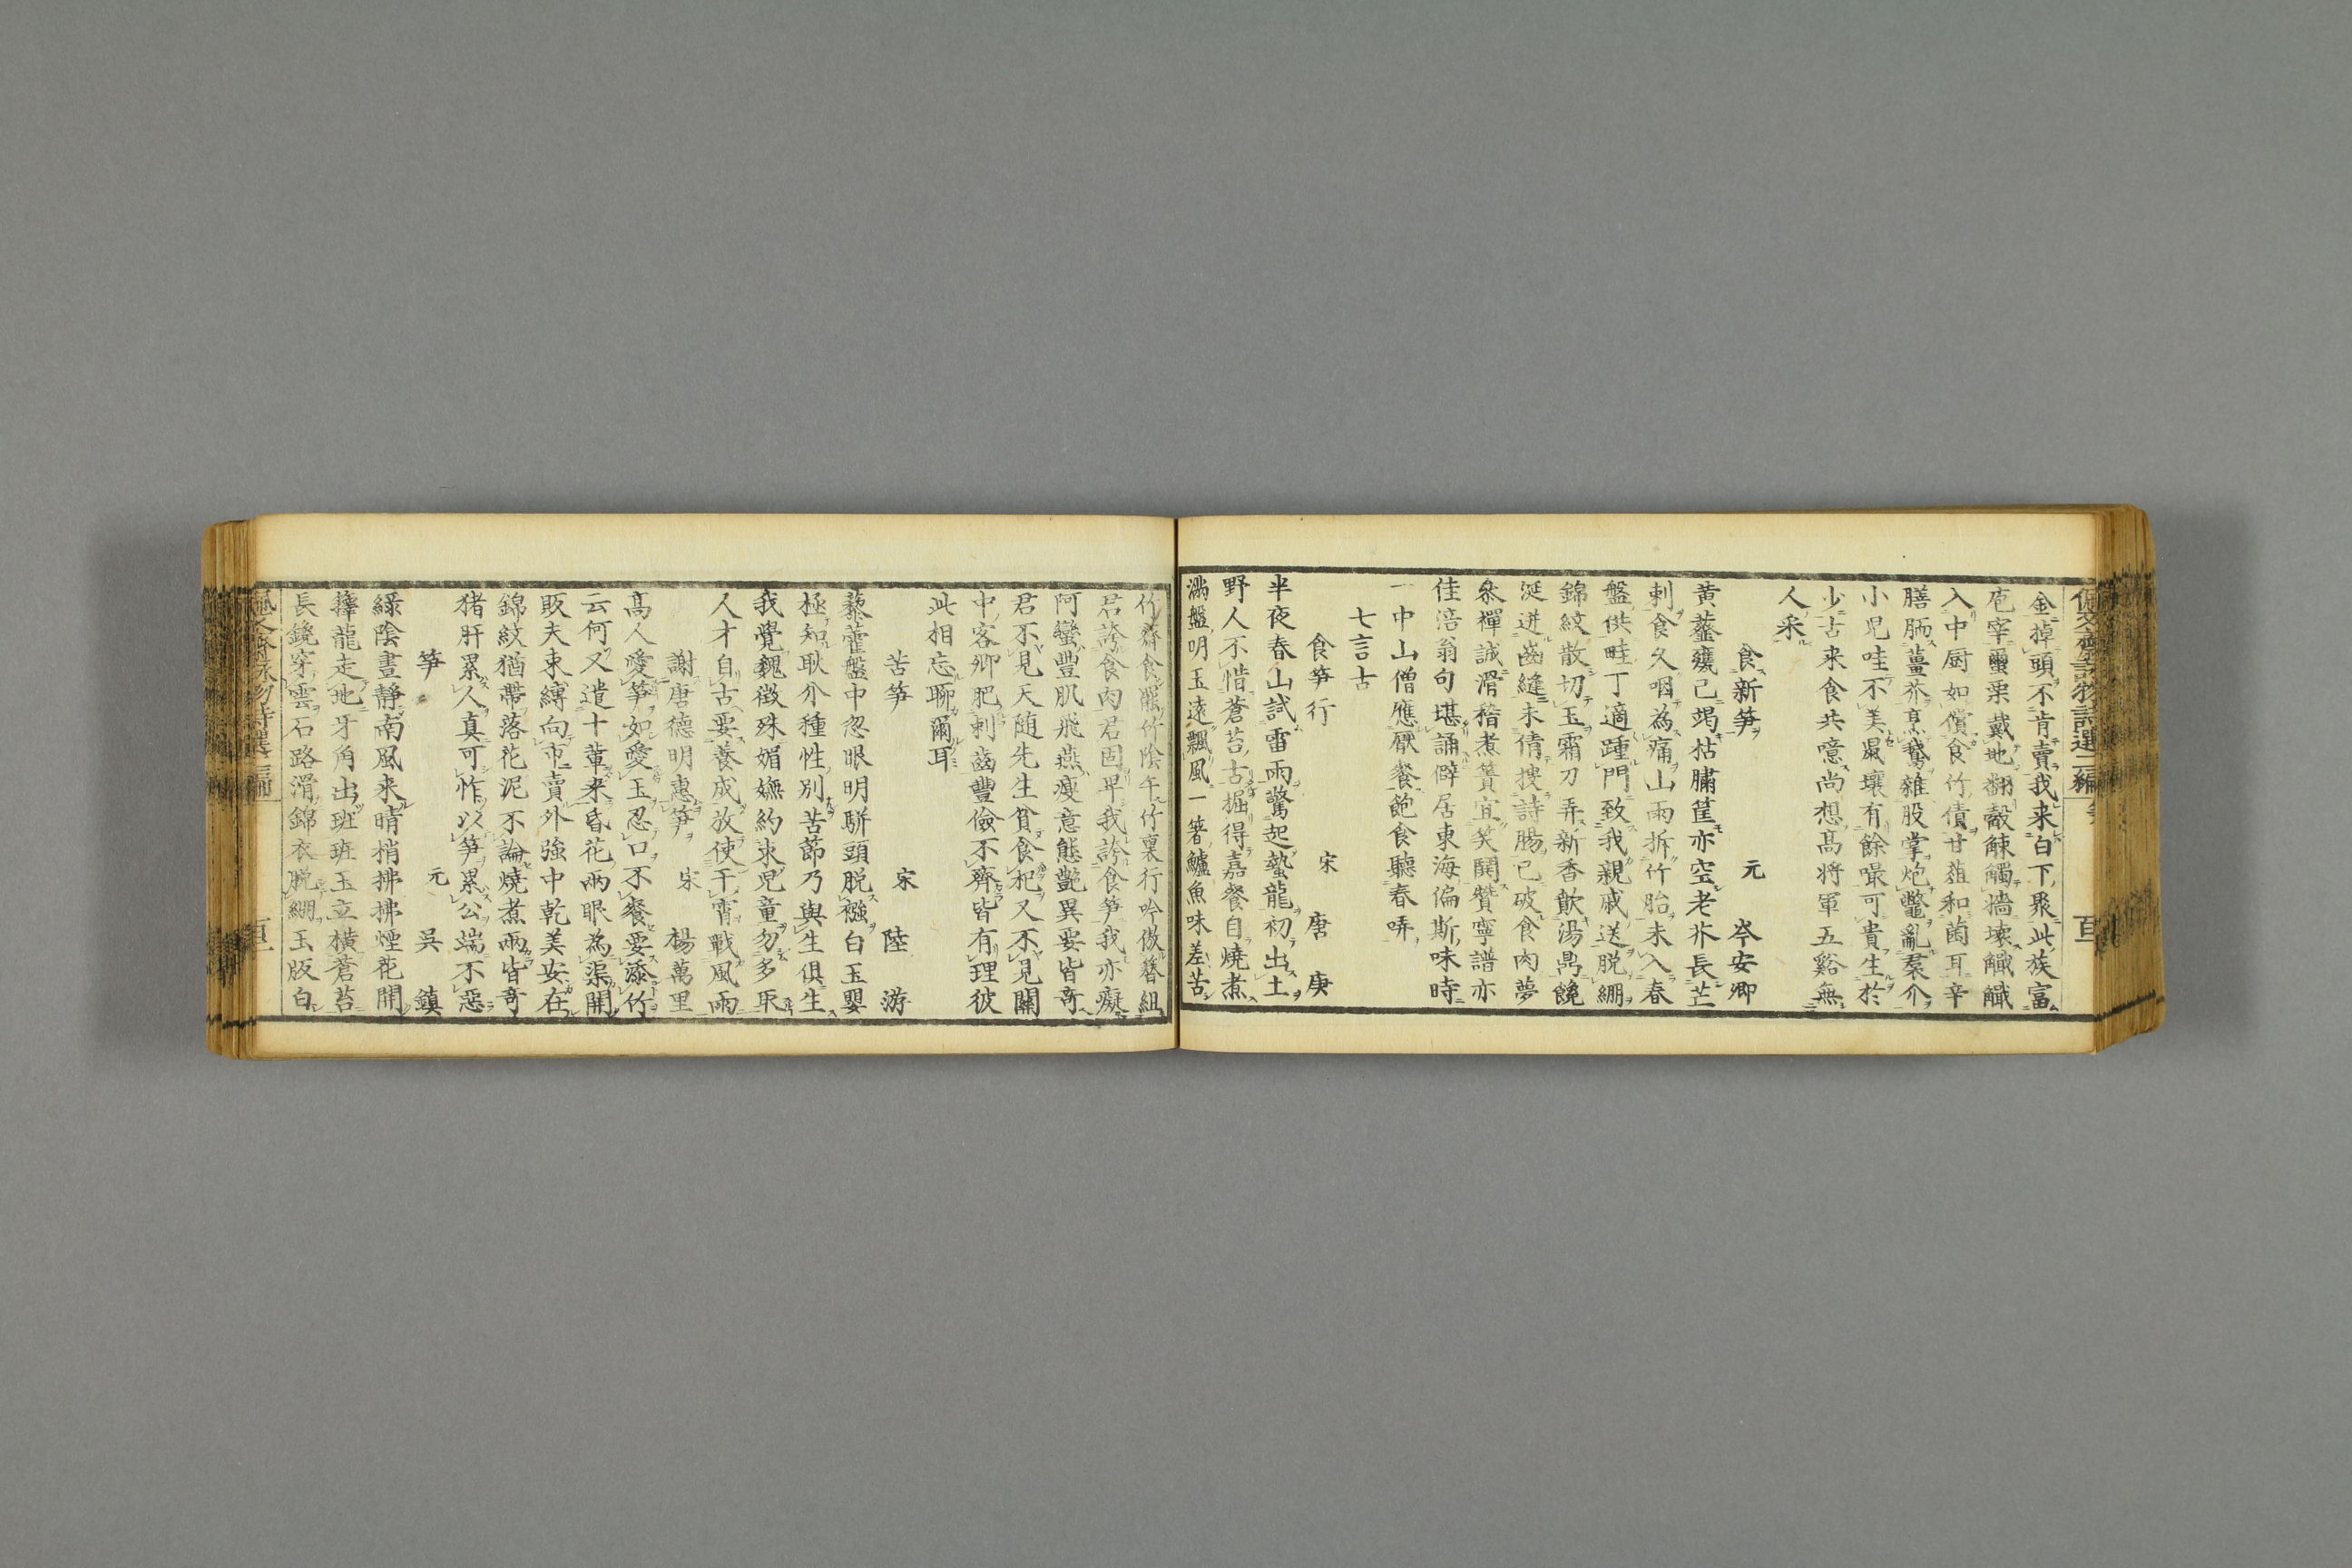 佩文齋詠物詩選二編 笋 百
金掉頭不肯賣我来白下聚此族富
庖宰蠒栗戴地翻觳觫觸墻壞觿觿
入中厨如償食竹債甘菹和菌耳辛
膳胹薑芥烹鵞雜股掌炮鼈亂羣介
小児哇不美鼠壤有餘嘬可貴生於
少古来食共噫尚想髙將軍五谿無
人采
食新笋 元 岑安卿
黄虀甕已竭枯䐹筐亦空老芥長芒
刺食久咽為痛山雨拆竹胎未入春
盤供畦丁適踵門致我親戚送脱綳
錦紋散切玉霜刀弄新香歕湯鼎饞
涎迸齒縫未倩搜詩腸已破食肉夢
叅禪誠滑稽煮簀宜笑閧贊寧譜亦
佳涪翁句堪誦僻居東海偏斯味時
一中山僧應厭飱飽食聽春哢
七言古
食笋行 宋 唐庚
半夜春山試雷雨驚起蟄龍初出土
野人不惜蒼苔古掘得嘉餐自燒煮
滿盤明玉逺飄風一箸鱸魚味差苦
竹齋食罷竹陰午竹裏行吟傲簪組
君誇食肉君固卑我誇食笋我亦癡
阿蠻豐肌飛燕瘦意態艶異要皆竒
君不見天随先生貧食杞又不見關
中客卿肥刺齒豐儉不齊皆有理彼
此相忘聊爾耳
苦笋 宋 陸游
藜藿盤中忽眼明駢頭脱襁白玉嬰
極知耿介種性別苦莭乃與生俱生
我覺魏徴殊媚嫵約束児童勿多取
人才自古要養成放使干霄戰風雨
謝唐德明惠笋 宋 楊萬里
髙人愛笋如愛玉忍口不餐要添竹
云何又遣十輩来昏花兩眼為渠開
販夫束縛向市賣外強中乾美安在
錦紋猶帶落花泥不論燒煮兩皆竒
猪肝累人真可怍以笋累公端不惡
笋 元 吳鎮
綠陰晝靜南風来晴梢拂拂煙花開
籜龍走地牙角出班班玉立橫蒼苔
長鑱穿雲石路滑錦衣脱綳玉版白
佩文齋詠物詩選二編 百一